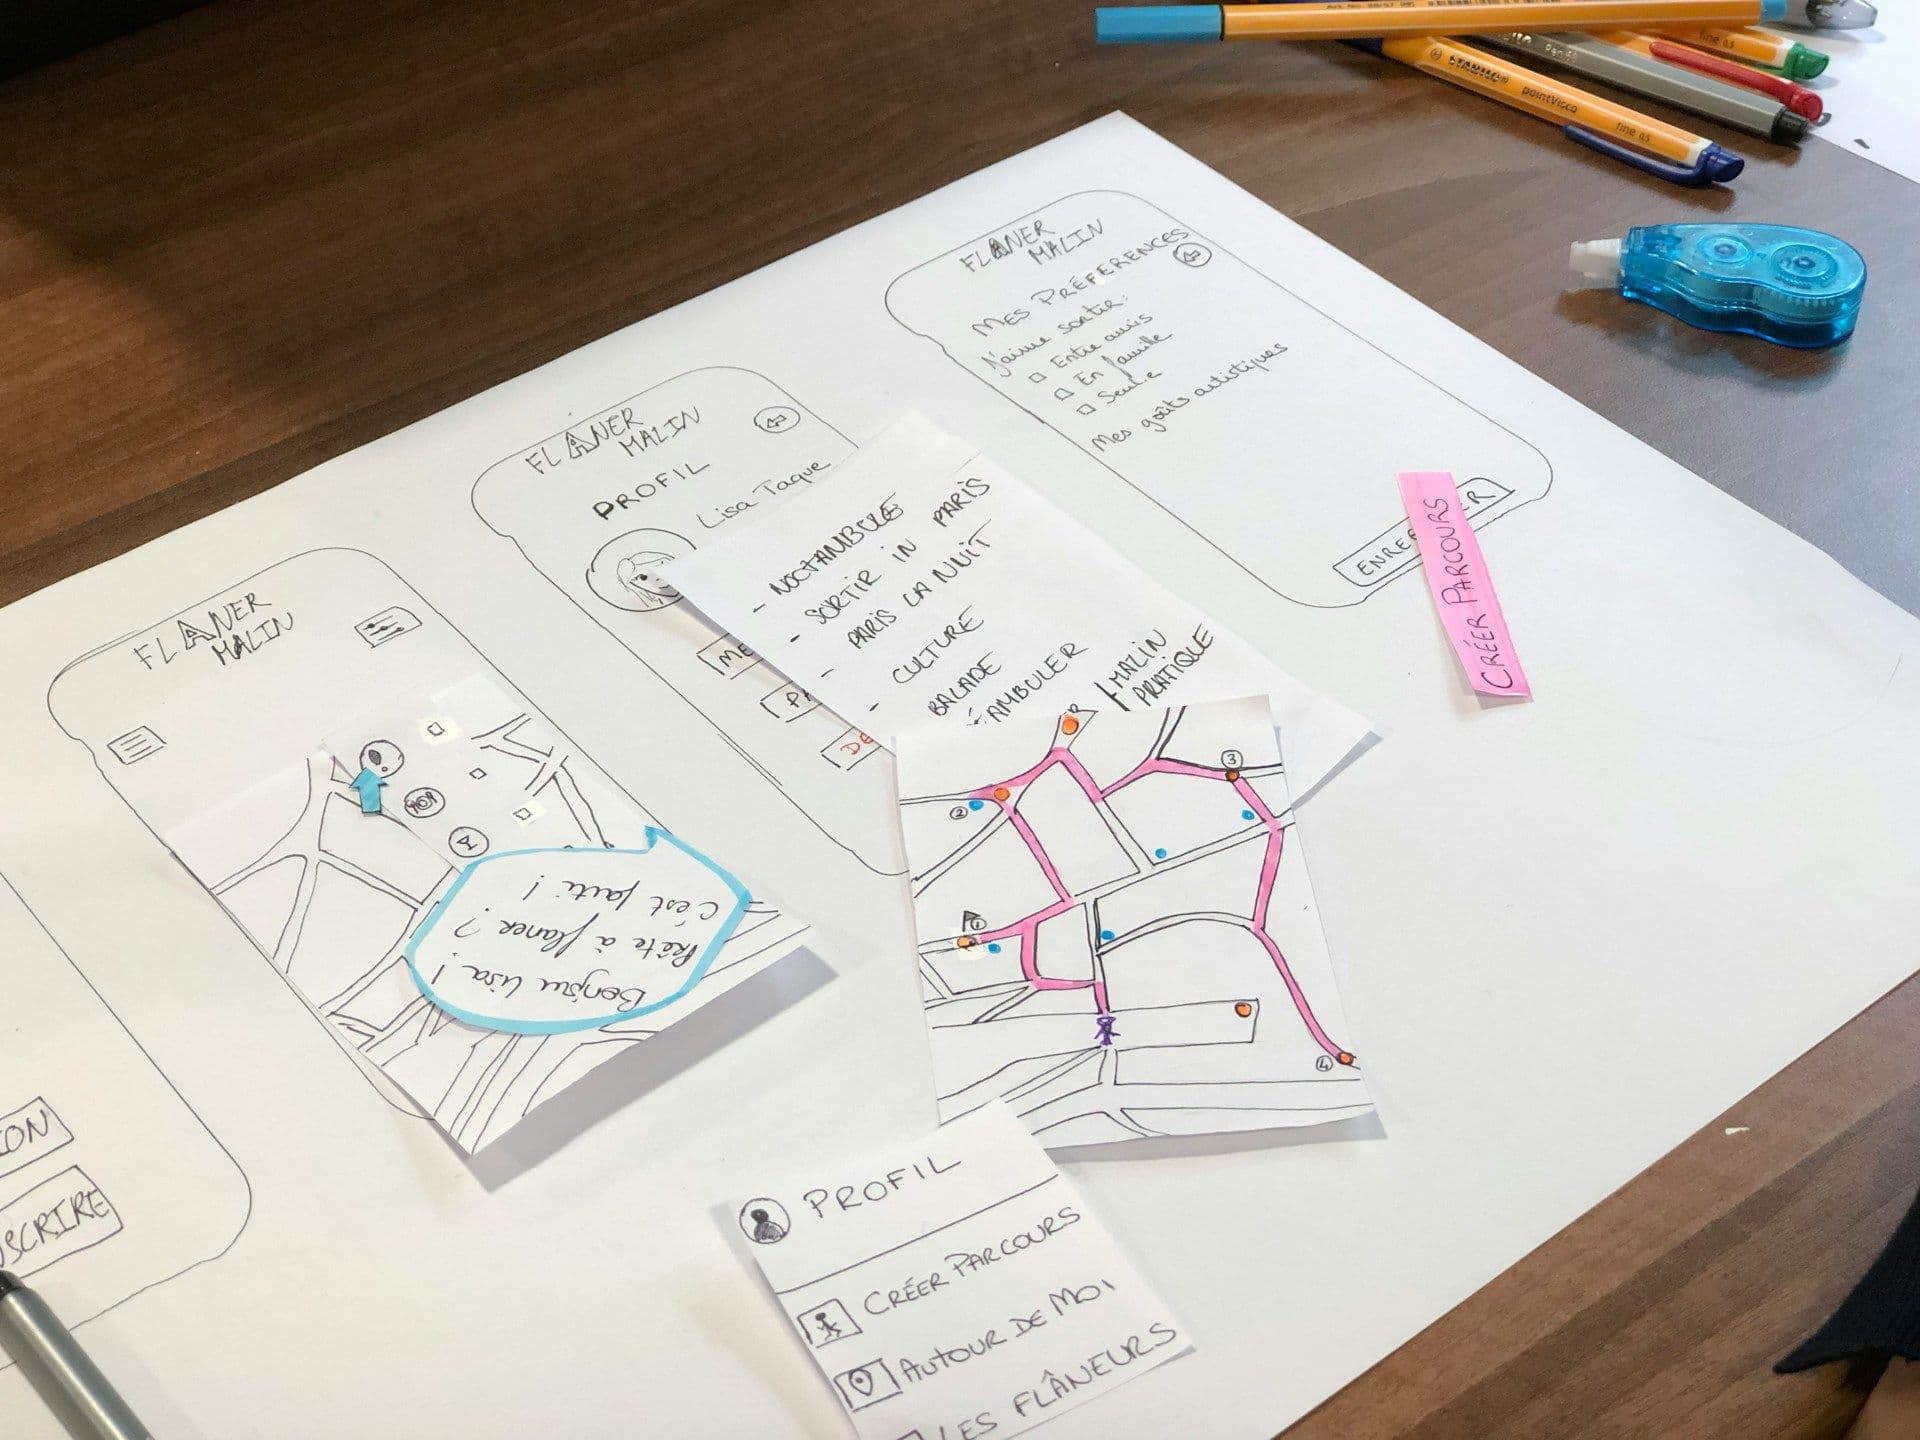 STABILO pointVisco fine 0.5
fine 0.5
FLANER
MALIN
MES PRÉFERENCES
J'aime sortir:
Entre amis
En famille
Seul·e
Mes goûts artistiques
CRÉER PARCOURS
FLANER
MALIN
PROFIL
Lisa Taque
ME
PA
DE
- NOCTAMBULE
- SORTIR IN PARIS
- PARIS LA NUIT
- CULTURE
BALADE
AMBULER
MALIN
PRATIQUE
FLANER
MALIN
Bonjour Lisa!
Prête à flaner ?
C'est parti !
1
2
3
4
ION
SCRIRE
PROFIL
CRÉER PARCOURS
AUTOUR DE MOI
LES FLÂNEURS